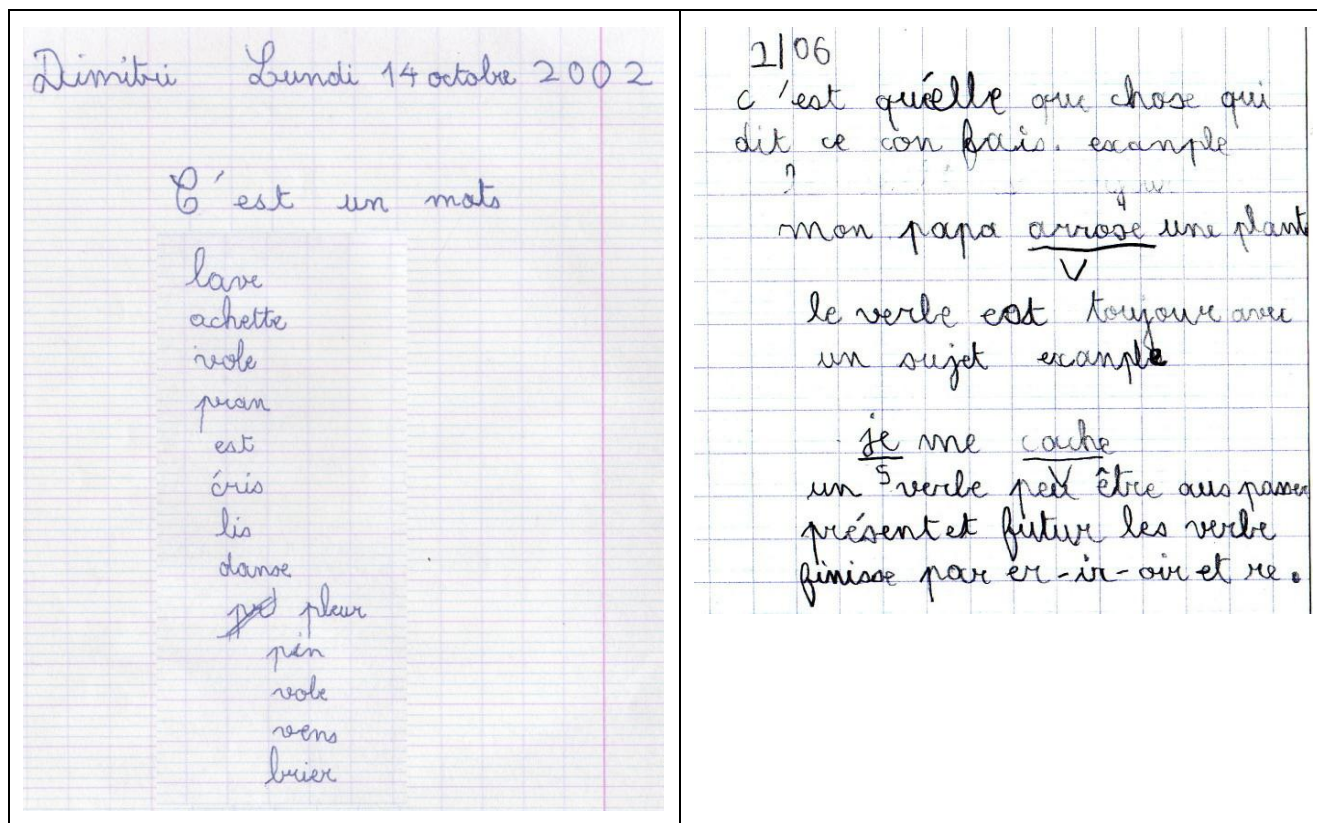 Dimitri Lundi 14 octobre 2002
C'est un mots
lave
achette
vole
pran
est
cris
lis
danse
pleur
pin
vole
vens
brier
2/06
c'est quéelle que chose qui
dit ce con fais. exanple
mon papa arrose une plant
V
le verbe est toujour avec
un sujet exanple
je me cache
S V
un verbe peu être aus passer
présent et futur les verbe
finisse par er-ir-oir et re.